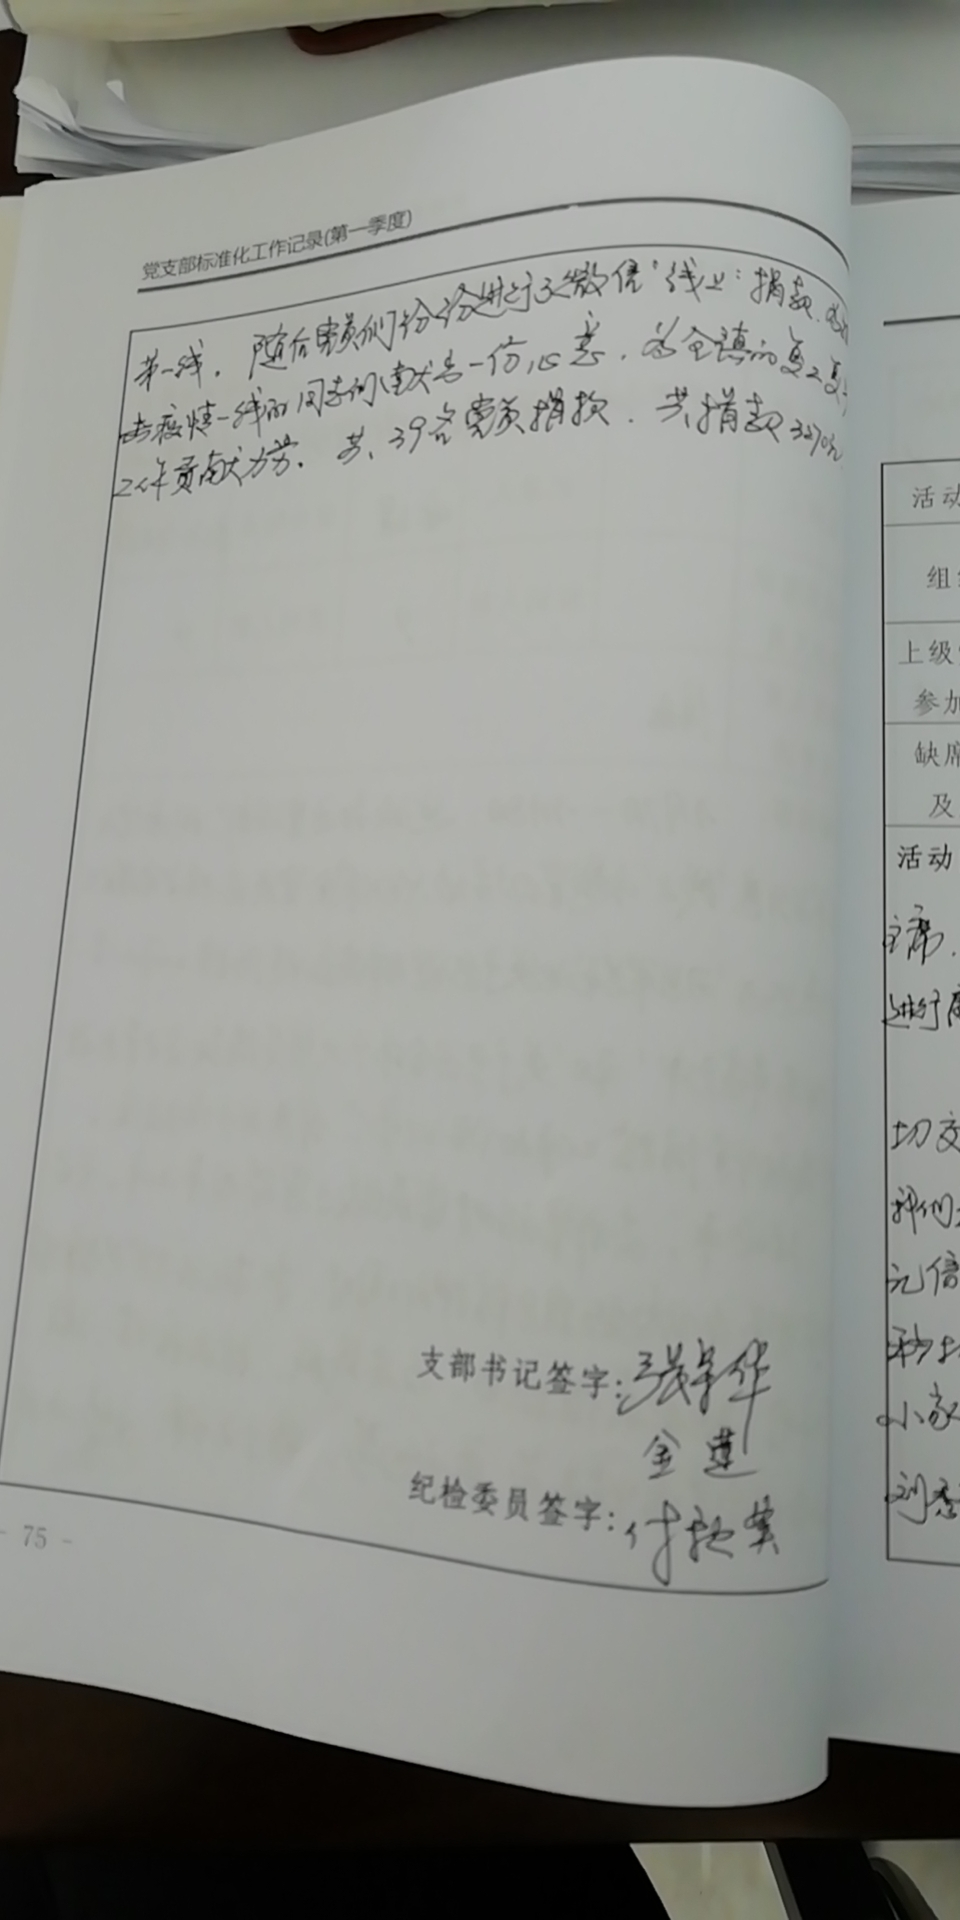 党支部标准化工作记录(第一季度)
第一线。随后党员们纷纷进行了微信"线上"捐款.为
击疫情一线的同志们献去一份心意.为全镇的复工复
工作贡献力量.共39名党员捐款.共捐款3270元
支部书记签字:
金莲
纪检委员签字:
- 75 -
活动
组
上级
参加
缺席
及
活动
主席.
进行
切交
我们
元信
秒
小家
刘